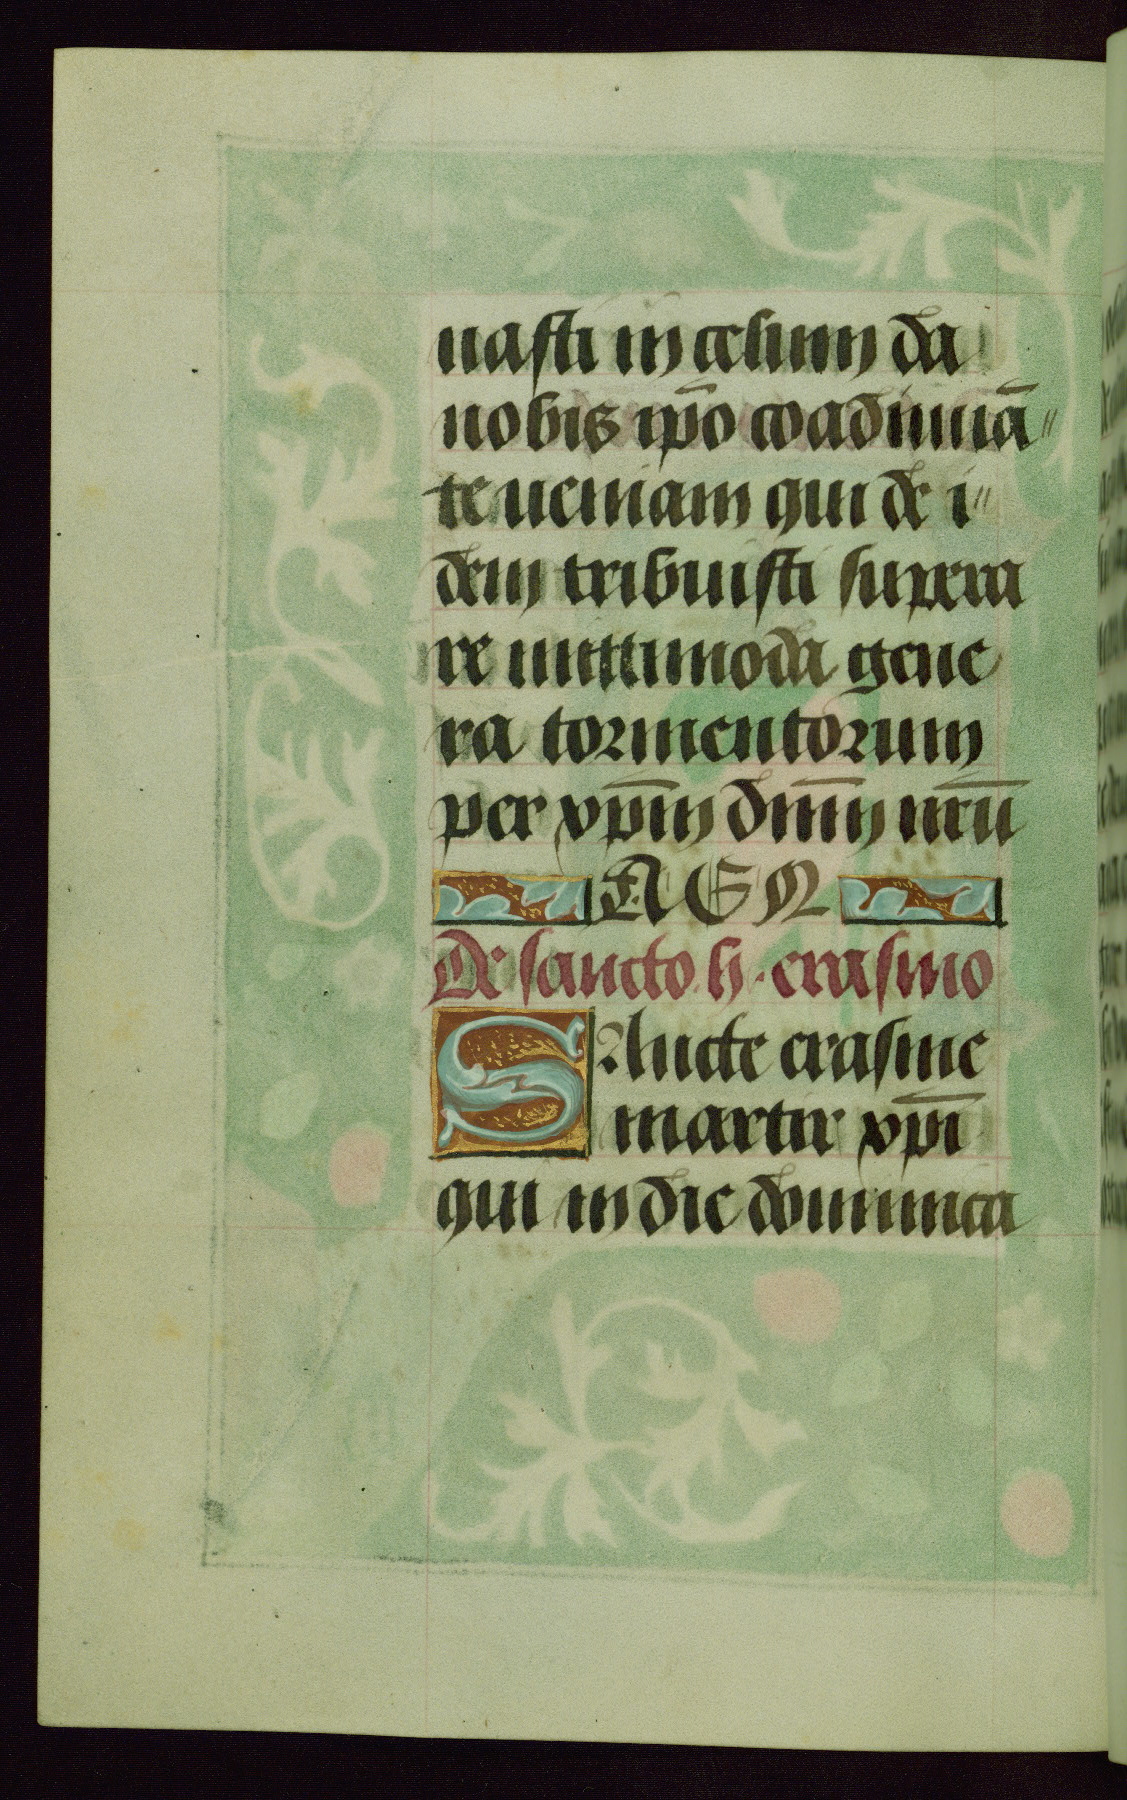 uasti in celum da
nobis ip̄o coadiuuā
te ueniam qui de i
dem tribuisti supera
re multimoda gene
ra tormentorum
per xp̄m dn̄m nr̄ū
AEN
De sancto h. erasmo
Sancte erasme
martir xp̄i
qui in die dominica